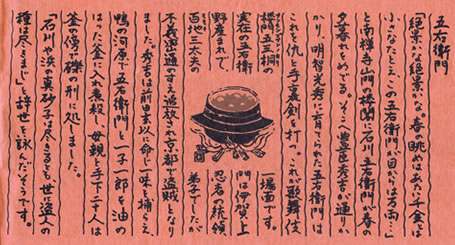 五右衛門
「絶景かな絶景かな。春の眺めはあたい千金とは
小さなたとえ、この五右衛門の目からは万両…」
と南禅寺山門の楼閣に石川五右衛門が春の
夕暮れをめでる。そこへ豊臣秀吉が通りか
かり、明智光秀に育てられた五右衛門は
これを仇と手裏剣を打つ。これが歌舞伎
楼門五三桐の 一場面です。
実在の五右衛 門は伊賀上
野産まれで 忍者の統領
百地三太夫の 弟子でしたが
不義密通のすえ追放され京都で盗賊となり
ました。秀吉は前田玄以に命じ一味を捕らえ
鴨の河原で五右衛門と一子一郎を油の
はった釜に入れ煮殺し、母親と手下二十人は
釜の傍で磔の刑に処しました。
「石川や浜の真砂子は尽きるとも世に盗人の
種は尽きまじ」と辞世を詠んだそうです。